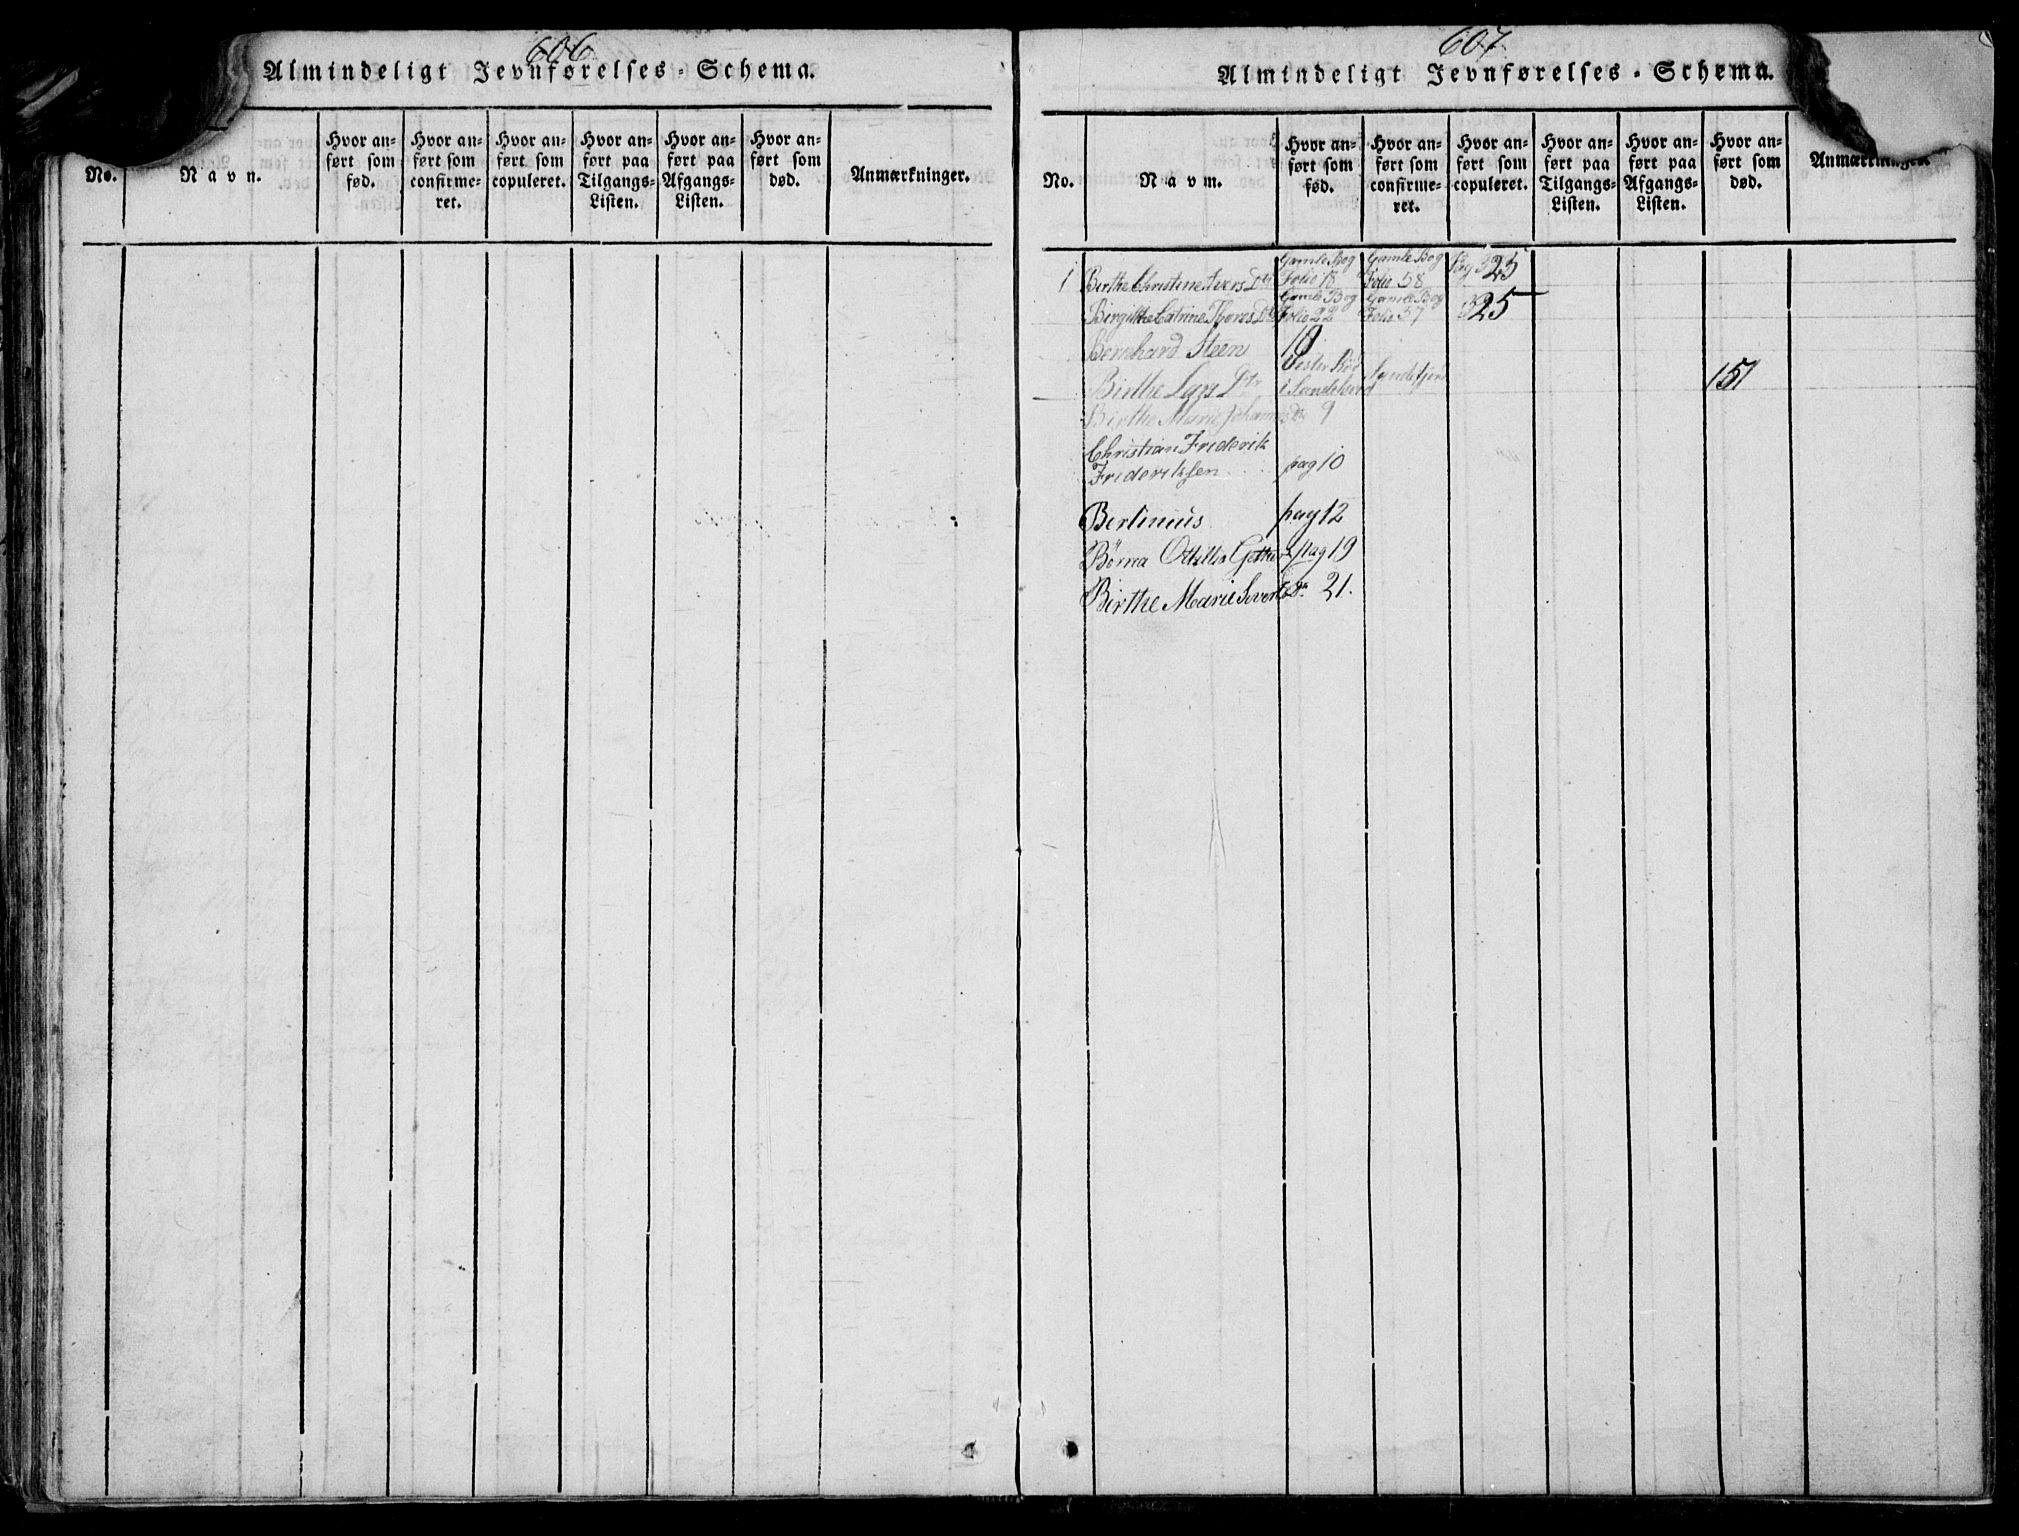 606
Almindeligt Jevnførelses-Schema.
No.
Navn.
Hvor an-
ført som
fød.
Hvor an-
ført som
confirme-
ret.
Hvor an-
ført som
copuleret.
Hvor an-
ført paa
Tilgangs-
Listen.
Hvor an-
ført paa
Afgangs-
Listen.
Hvor an-
ført som
død.
Anmærkninger.
607
Almindeligt Jevnførelses-Schema.
No.
Navn.
Hvor an-
ført som
fød.
Hvor an-
ført som
confirme-
ret.
Hvor an-
ført som
copuleret.
Hvor an-
ført paa
Tilgangs-
Listen.
Hvor an-
ført paa
Afgangs-
Listen.
Hvor an-
ført som
død.
Anmærkninger
Gamle Bog Gamle Bog
1 Birthe Christine Ivers Folio 18 Folio 58 Pag 325
Gamle Bog Gamle Bog
Birgitthe Catrine Thores Folio 22 Folio 57 325
Bernhard Steen 18
Vester Röd
Birthe Lars Dtr i Sandeherred 151
Birthe Marie 9
Christian Friderik
Frideriksen pag 10
Bertinius pag 12
Othillia pag 19
Birthe Marie 21.